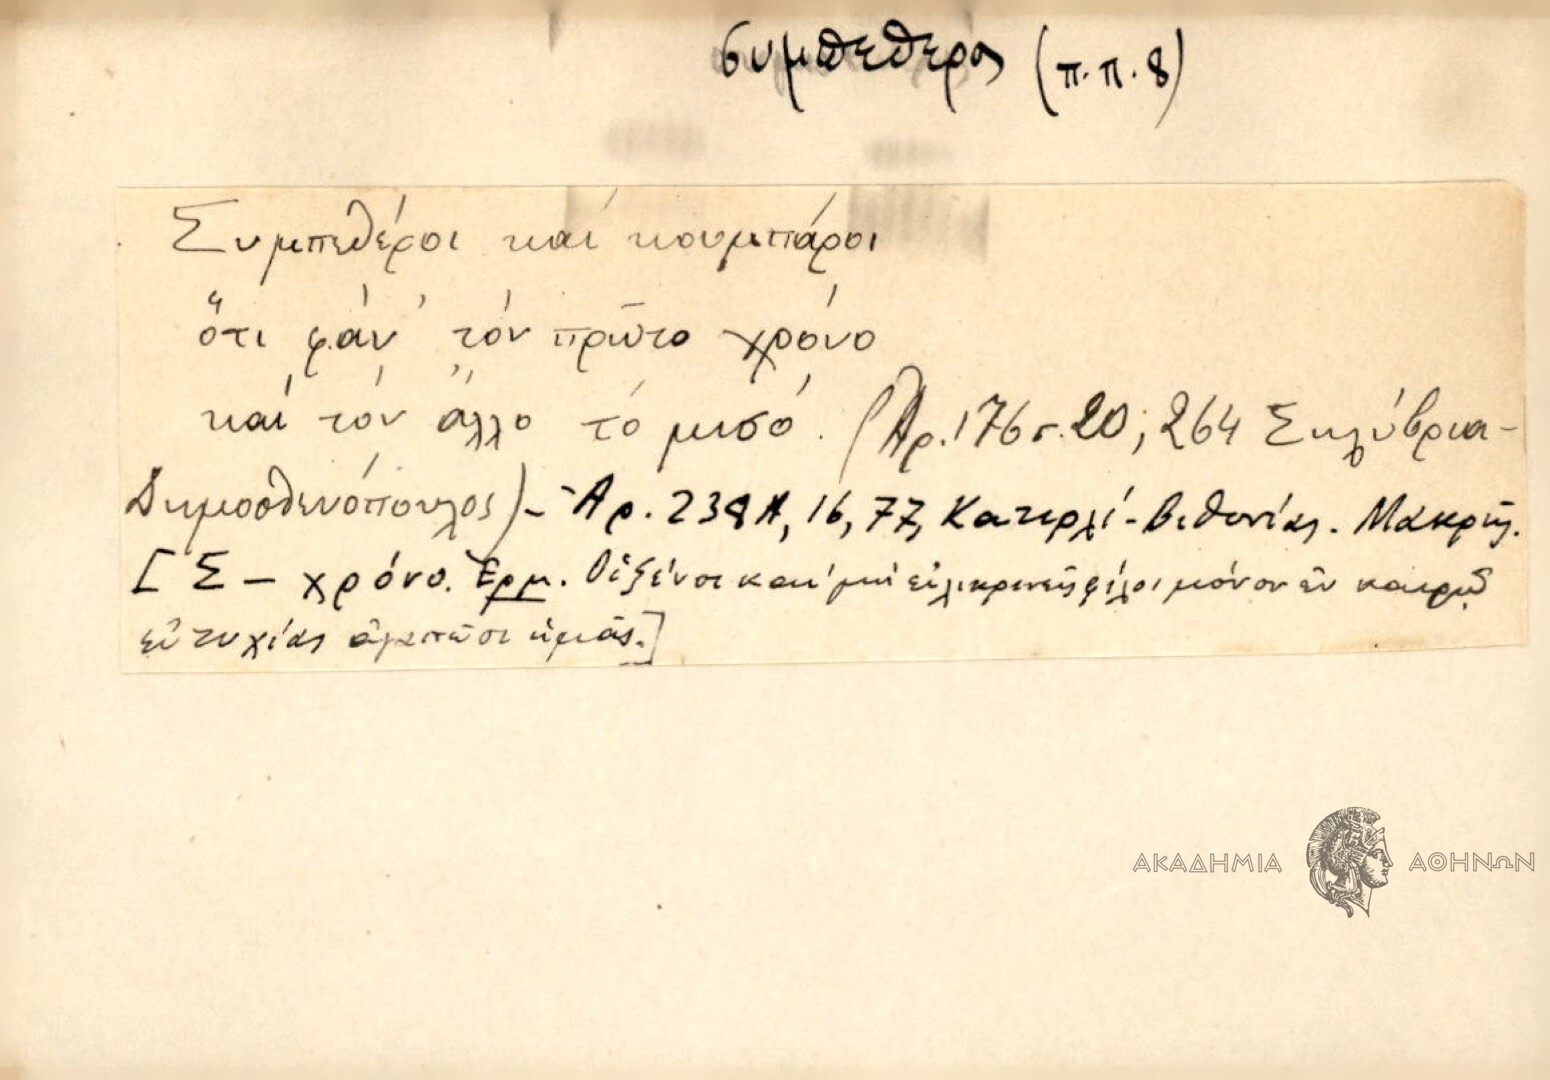 συμπεθερος (π.π. 8)
Συμπεθέροι καί κουμπάροι
ὅτι φάν' τόν πρῶτο χρόνο
καί τόν ἄλλο τό μισό. (Ἀρ. 176 σ. 20, 264 Σηλύβρια -
Δημοσθενόπουλος) - Ἀρ. 238Α, 16, 77, Κατιρλί - Βιθυνίας. Μακρῆς.
[Σ - χρόνο. Ἑρμ. Οἱ ξένοι καί μή εἰλικρινεῖς φίλοι μόνον ἐν καιρῷ
εὐτυχίας ἀγαπῶσι ἡμᾶς.]
ΑΚΑΔΗΜΙΑ ΑΘΗΝΩΝ